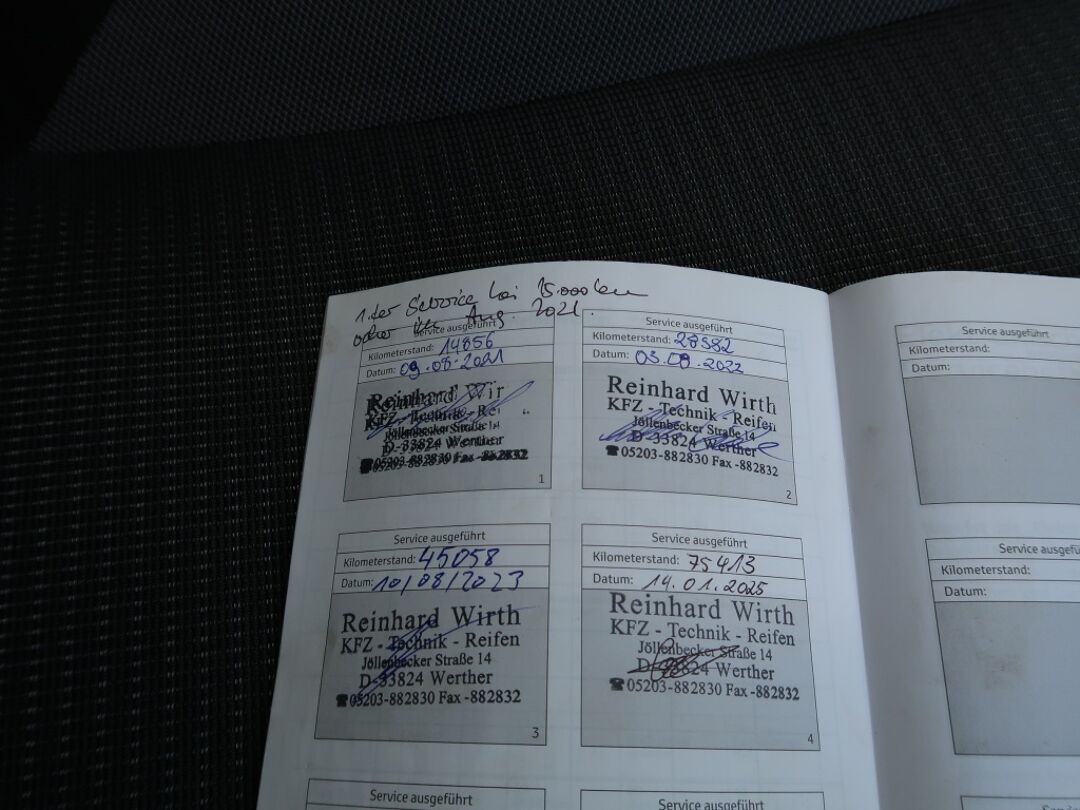 1.ter Service bei 15.000 km
oder im Aug. 2021.
Service ausgeführt
Kilometerstand: 14856
Datum: 09.08.2021
Reinhard Wir
KFZ - Technik - Rei
Jöllenbecker Straße 14
D-33824 Werther
05203-882830 Fax -882832
1
Service ausgeführt
Kilometerstand: 28382
Datum: 03.09.2022
Reinhard Wirth
KFZ - Technik - Reifen
Jöllenbecker Straße 14
D-33824 Werther
☎05203-882830 Fax -882832
2
Service ausgeführt
Kilometerstand: 45058
Datum: 10/08/2023
Reinhard Wirth
KFZ - Technik - Reifen
Jöllenbecker Straße 14
D-33824 Werther
☎05203-882830 Fax -882832
3
Service ausgeführt
Kilometerstand: 75413
Datum: 14.01.2025
Reinhard Wirth
KFZ - Technik - Reifen
Jöllenbecker Straße 14
D-33824 Werther
☎05203-882830 Fax -882832
4
Service ausgeführt
Service ausgeführt
Service ausgeführt
Kilometerstand:
Datum:
Service ausgefü
Kilometerstand:
Datum: